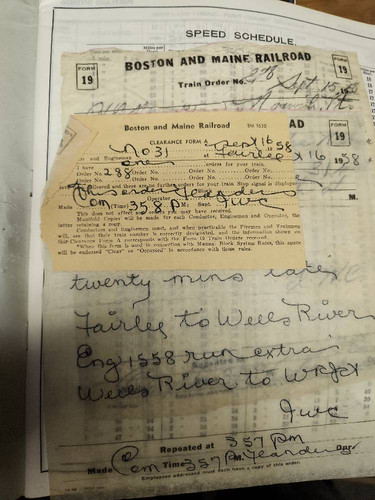 SPEED SCHEDULE.
FORM 19
BOSTON AND MAINE RAILROAD
FORM 19
Train Order No. 278 Sept. 15, 58
RAILROAD
FORM 19
Boston and Maine Railroad
CLEARANCE FORM A
No 31 Sept 16 58
and Enginemen at Fairlee
I have one orders for your train.
Order No. 288 Order No. Order No.
Order No. Order No. Order No.
Order No. Order No. Order No.
16, 1958
Operator
Made Com 358 P M. Supt. JWC
This does not affect any orders you may have received.
Manifold Copies will be made for each Conductor, Engineman and Operator, the
latter retaining a copy.
Conductors and Enginemen must, and when practicable the Firemen and Trainmen
will, see that their train number is correctly designated, and the information shown on
this Clearance Form A corresponds with the Form 19 Train Orders received.
"When this form is used in connection with Manual Block System Rules, this space
will be endorsed "Clear" or "Occupied" in accordance with those rules.
M.
twenty mins late
Fairlee to Wells River
Eng 1558 run extra
Wells River to WRJct
JWC
Repeated at 357 PM
Made Com Time 357 P M. Leander Opr.
Employees addressed must each have a copy of this order.